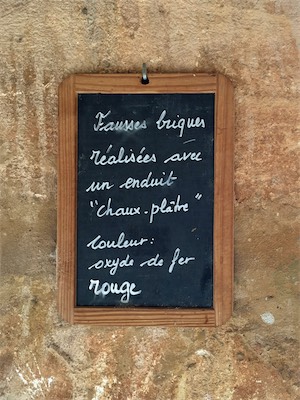 Fausses briques
réalisées avec
un enduit
"chaux-plâtre"
couleur:
oxyde de fer
rouge